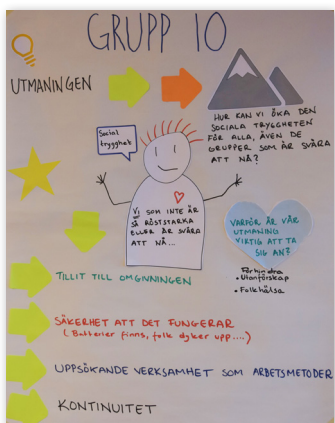 GRUPP 10
UTMANINGEN
HUR KAN VI ÖKA DEN
SOCIALA TRYGGHETEN
FÖR ALLA, ÄVEN DE
GRUPPER SOM ÄR SVÅRA
ATT NÅ?
Social
trygghet
VI SOM INTE ÄR
SÅ RÖSTSTARKA
ELLER ÄR SVÅRA
ATT NÅ...
VARFÖR ÄR VÅR
UTMANING
VIKTIG ATT TA
SIG AN?
Förhindra
• Utanförskap
• Folkhälsa
TILLIT TILL OMGIVNINGEN
SÄKERHET ATT DET FUNGERAR
(Batterier finns, folk dyker upp....)
UPPSÖKANDE VERKSAMHET SOM ARBETSMETODER
KONTINUITET